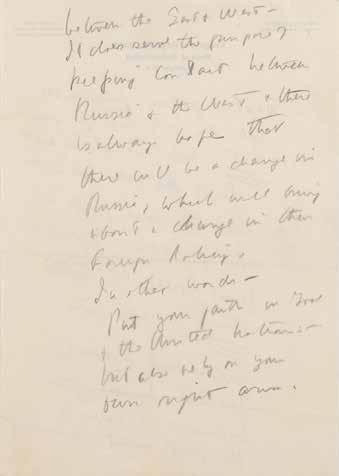 between the East & West –
It does serve the purpose of
keeping contact between
Russia & the West & there
is always hope that
there will be a change in
Russia, which will bring
about a change in their
Foreign Policy.
In other words –
Put your faith in God
& the United Nations –
but also rely on your
own right arm.